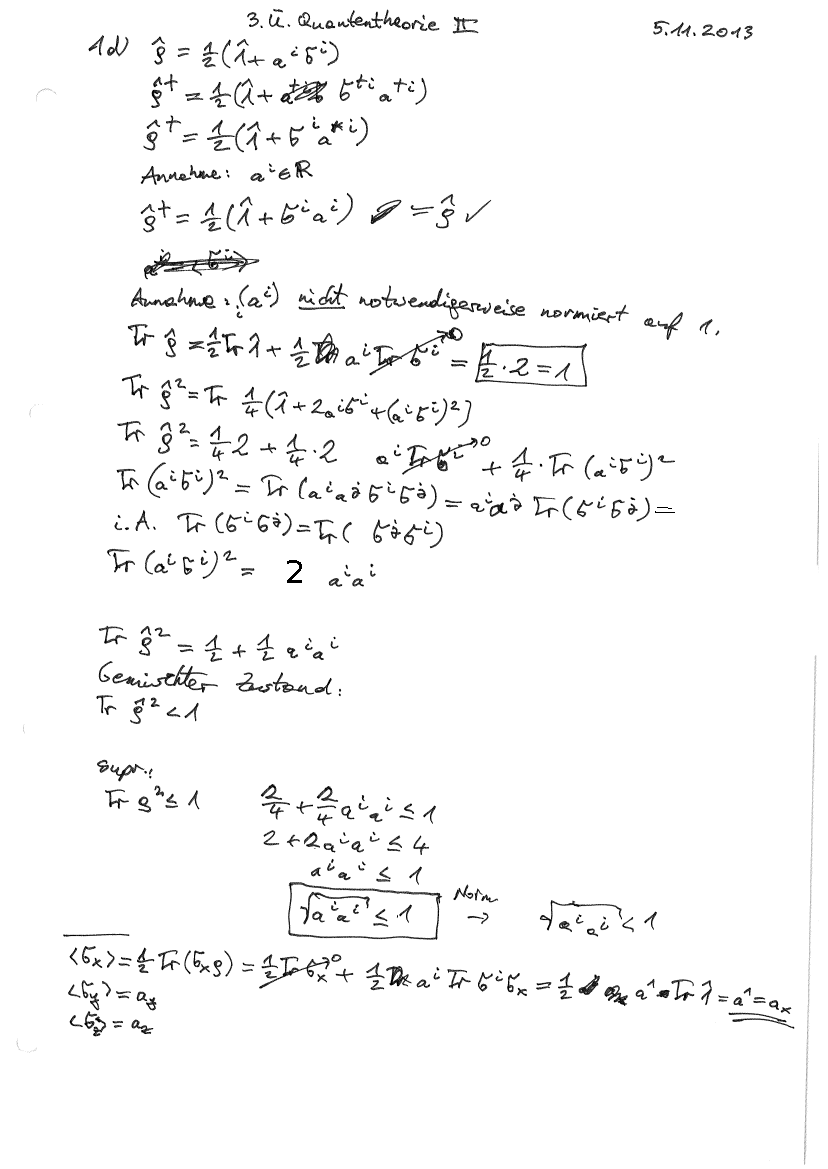 3. Ü. Quantentheorie II 5.11.2013
1d) ρ̂ = ½(1̂ + aⁱσⁱ)
ρ̂† = ½(1̂ + σ†ⁱa†ⁱ)
ρ̂† = ½(1̂ + σⁱa*ⁱ)
Annahme: aⁱ∈ℝ
ρ̂† = ½(1̂ + σⁱaⁱ) = ρ̂ ✓
Annahme: (aⁱ)ᵢ nicht notwendigerweise normiert auf 1.
Tr ρ̂ = ½Tr 1̂ + ½ aⁱ Tr σⁱ → 0 = ½·2 = 1
Tr ρ̂² = Tr ¼(1̂ + 2aⁱσⁱ + (aⁱσⁱ)²)
Tr ρ̂² = ¼2 + ¼·2 aⁱ Tr σⁱ → 0 + ¼·Tr (aⁱσⁱ)²
Tr (aⁱσⁱ)² = Tr (aⁱaʲσⁱσʲ) = aⁱaʲ Tr(σⁱσʲ) =
i.A. Tr (σⁱσʲ) = Tr ( σʲσⁱ)
Tr (aⁱσⁱ)² = 2 aⁱaⁱ
Tr ρ̂² = ½ + ½ aⁱaⁱ
Gemischter Zustand:
Tr ρ̂² < 1
Tr ρ² ≤ 1 2/4 + 2/4 aⁱaⁱ ≤ 1
2 + 2aⁱaⁱ ≤ 4
aⁱaⁱ ≤ 1
√aⁱaⁱ ≤ 1 Norm → √aⁱaⁱ < 1
⟨σₓ⟩ = ½ Tr(σₓρ) = ½ Tr σₓ → 0 + ½ aⁱ Tr σⁱσₓ = ½ a¹ Tr 1̂ = a¹ = aₓ
⟨σ_y⟩ = a_y
⟨σ_z⟩ = a_z